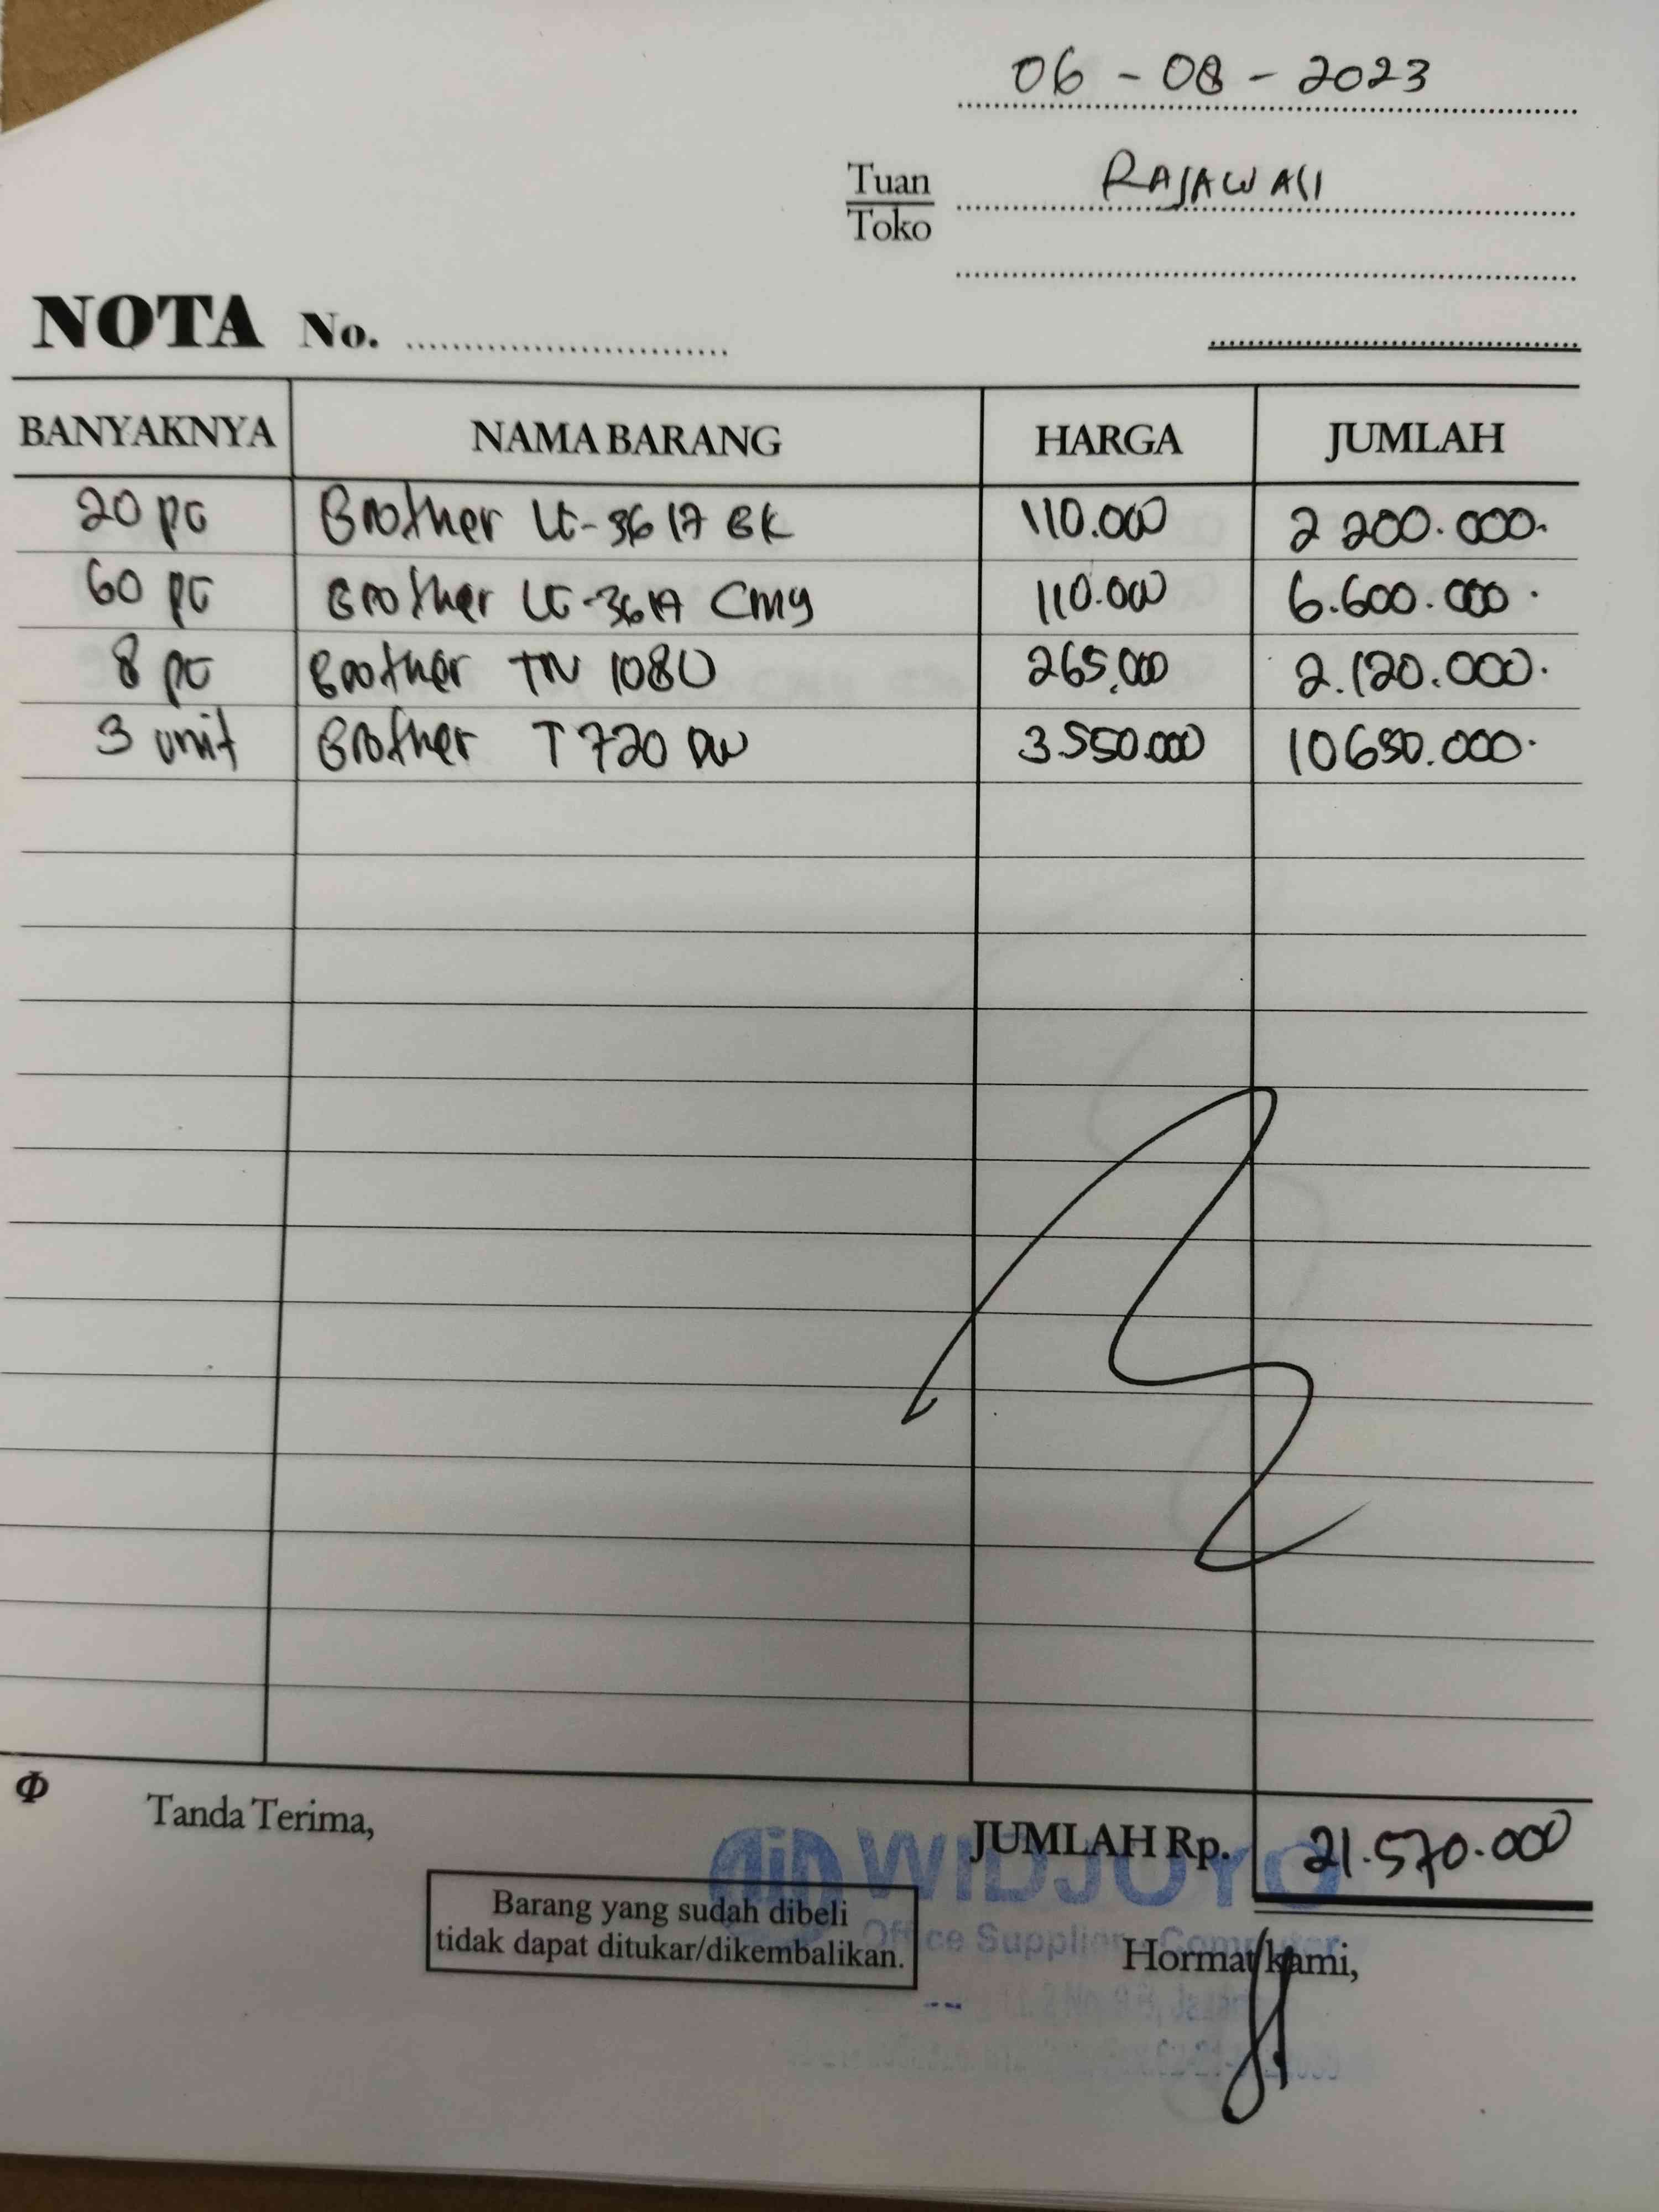 06 - 08 - 2023
Tuan
Toko
RAJAWALI
NOTA No.
BANYAKNYA NAMA BARANG HARGA JUMLAH
20 pc Brother LC-3617 BK 110.000 2 200.000.
60 pc Brother LC-3617 CMY 110.000 6.600.000.
8 pc Brother TN 1080 265.000 2.120.000.
3 unit Brother T720 DW 3.550.000 10650.000.
Φ
Tanda Terima,
JUMLAH Rp. 21.570.000
WIDJOYO
Barang yang sudah dibeli
tidak dapat ditukar/dikembalikan.
Office Supplier Computer
Hormat kami,